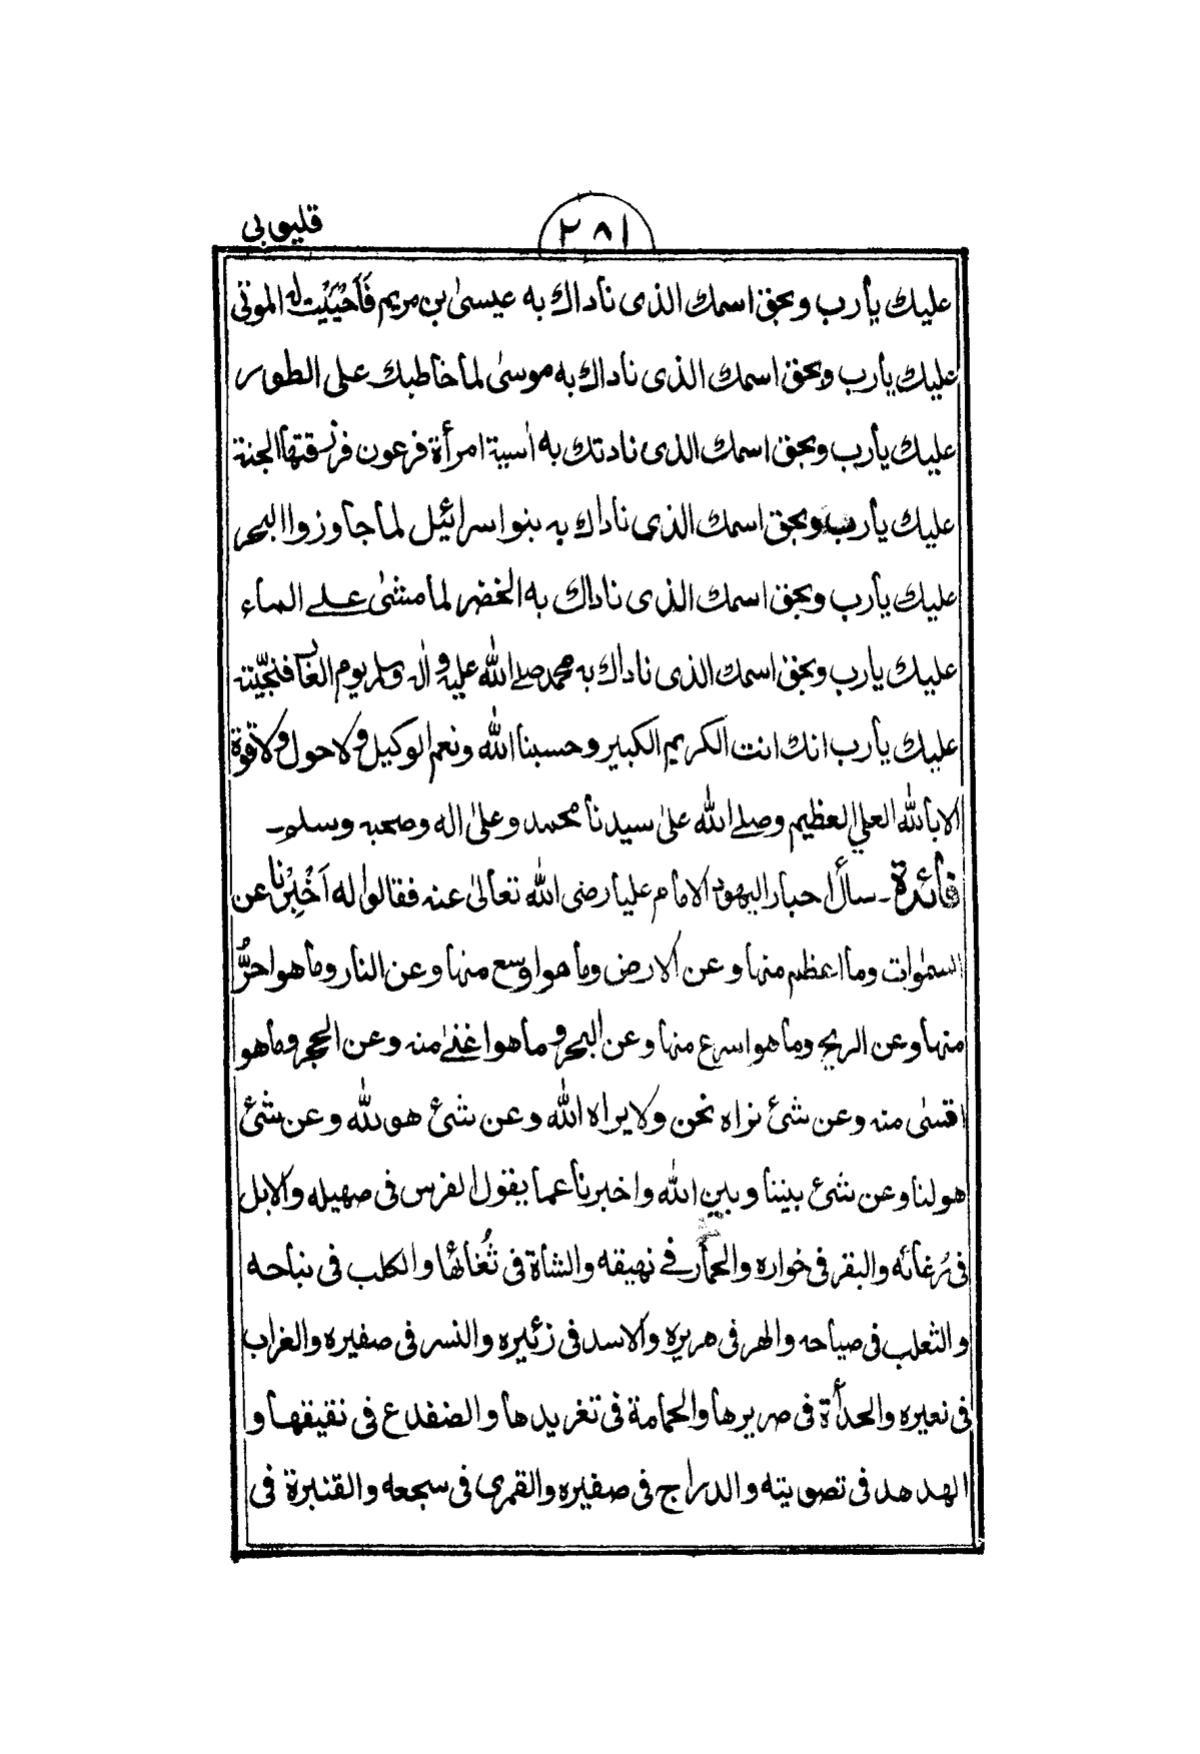 قليوبى
٢٨١
عليك يارب وبحق اسمك الذى ناداك به عيسىٰ بن مريم فَاَحْيَيْتَ له الموتى
عليك يارب وبحق اسمك الذى ناداك به موسىٰ لما خاطبك على الطور
عليك يارب وبحق اسمك الذى نادتك به اٰسية امرأة فرعون فرزقتها الجنة
عليك يارب وبحق اسمك الذى ناداك به بنو اسرائيل لما جاوزوا البحر
عليك يارب وبحق اسمك الذى ناداك به الخضر لما مشىٰ على الماء
عليك يارب وبحق اسمك الذى ناداك به محمد صلى الله عليه واٰله وسلم يوم الغار فنجّيته
عليك يارب انك انت الكريم الكبير وحسبنا الله ونعم الوكيل ولا حول ولا قوة
الا بالله العلي العظيم وصلى الله علىٰ سيدنا محمد وعلىٰ اله وصحبه وسلم۔
فائدة۔ سأل احبار اليهود الامام عليا رضى الله تعالىٰ عنه فقالوا له اَخْبِرْنا عن
السمٰوات وما اعظم منها وعن الارض وما هو اوسع منها وعن النار وما هو احرُّ
منها وعن الريح وما هو اسرع منها وعن البحر وما هو اغنىٰ منه وعن الحجر وما هو
اقسىٰ منه وعن شئ نراه نحن ولا يراه الله وعن شئ هو لله وعن شئ
هو لنا وعن شئ بيننا وبين الله واخبرنا عما يقول الفرس فى صهيله والابل
فى رُغائه والبقر فى خواره والحمار فى نهيقه والشاة فى ثُغائها والكلب فى نباحه
والثعلب فى صياحه والهر فى هريره والاسد فى زئيره والنسر فى صفيره والغراب
فى نعيره والحدأة فى صريرها والحمامة فى تغريدها والضفدع فى نقيقها و
الهدهد فى تصويته والدراج فى صفيره والقمرى فى سجعه والقنبرة فى